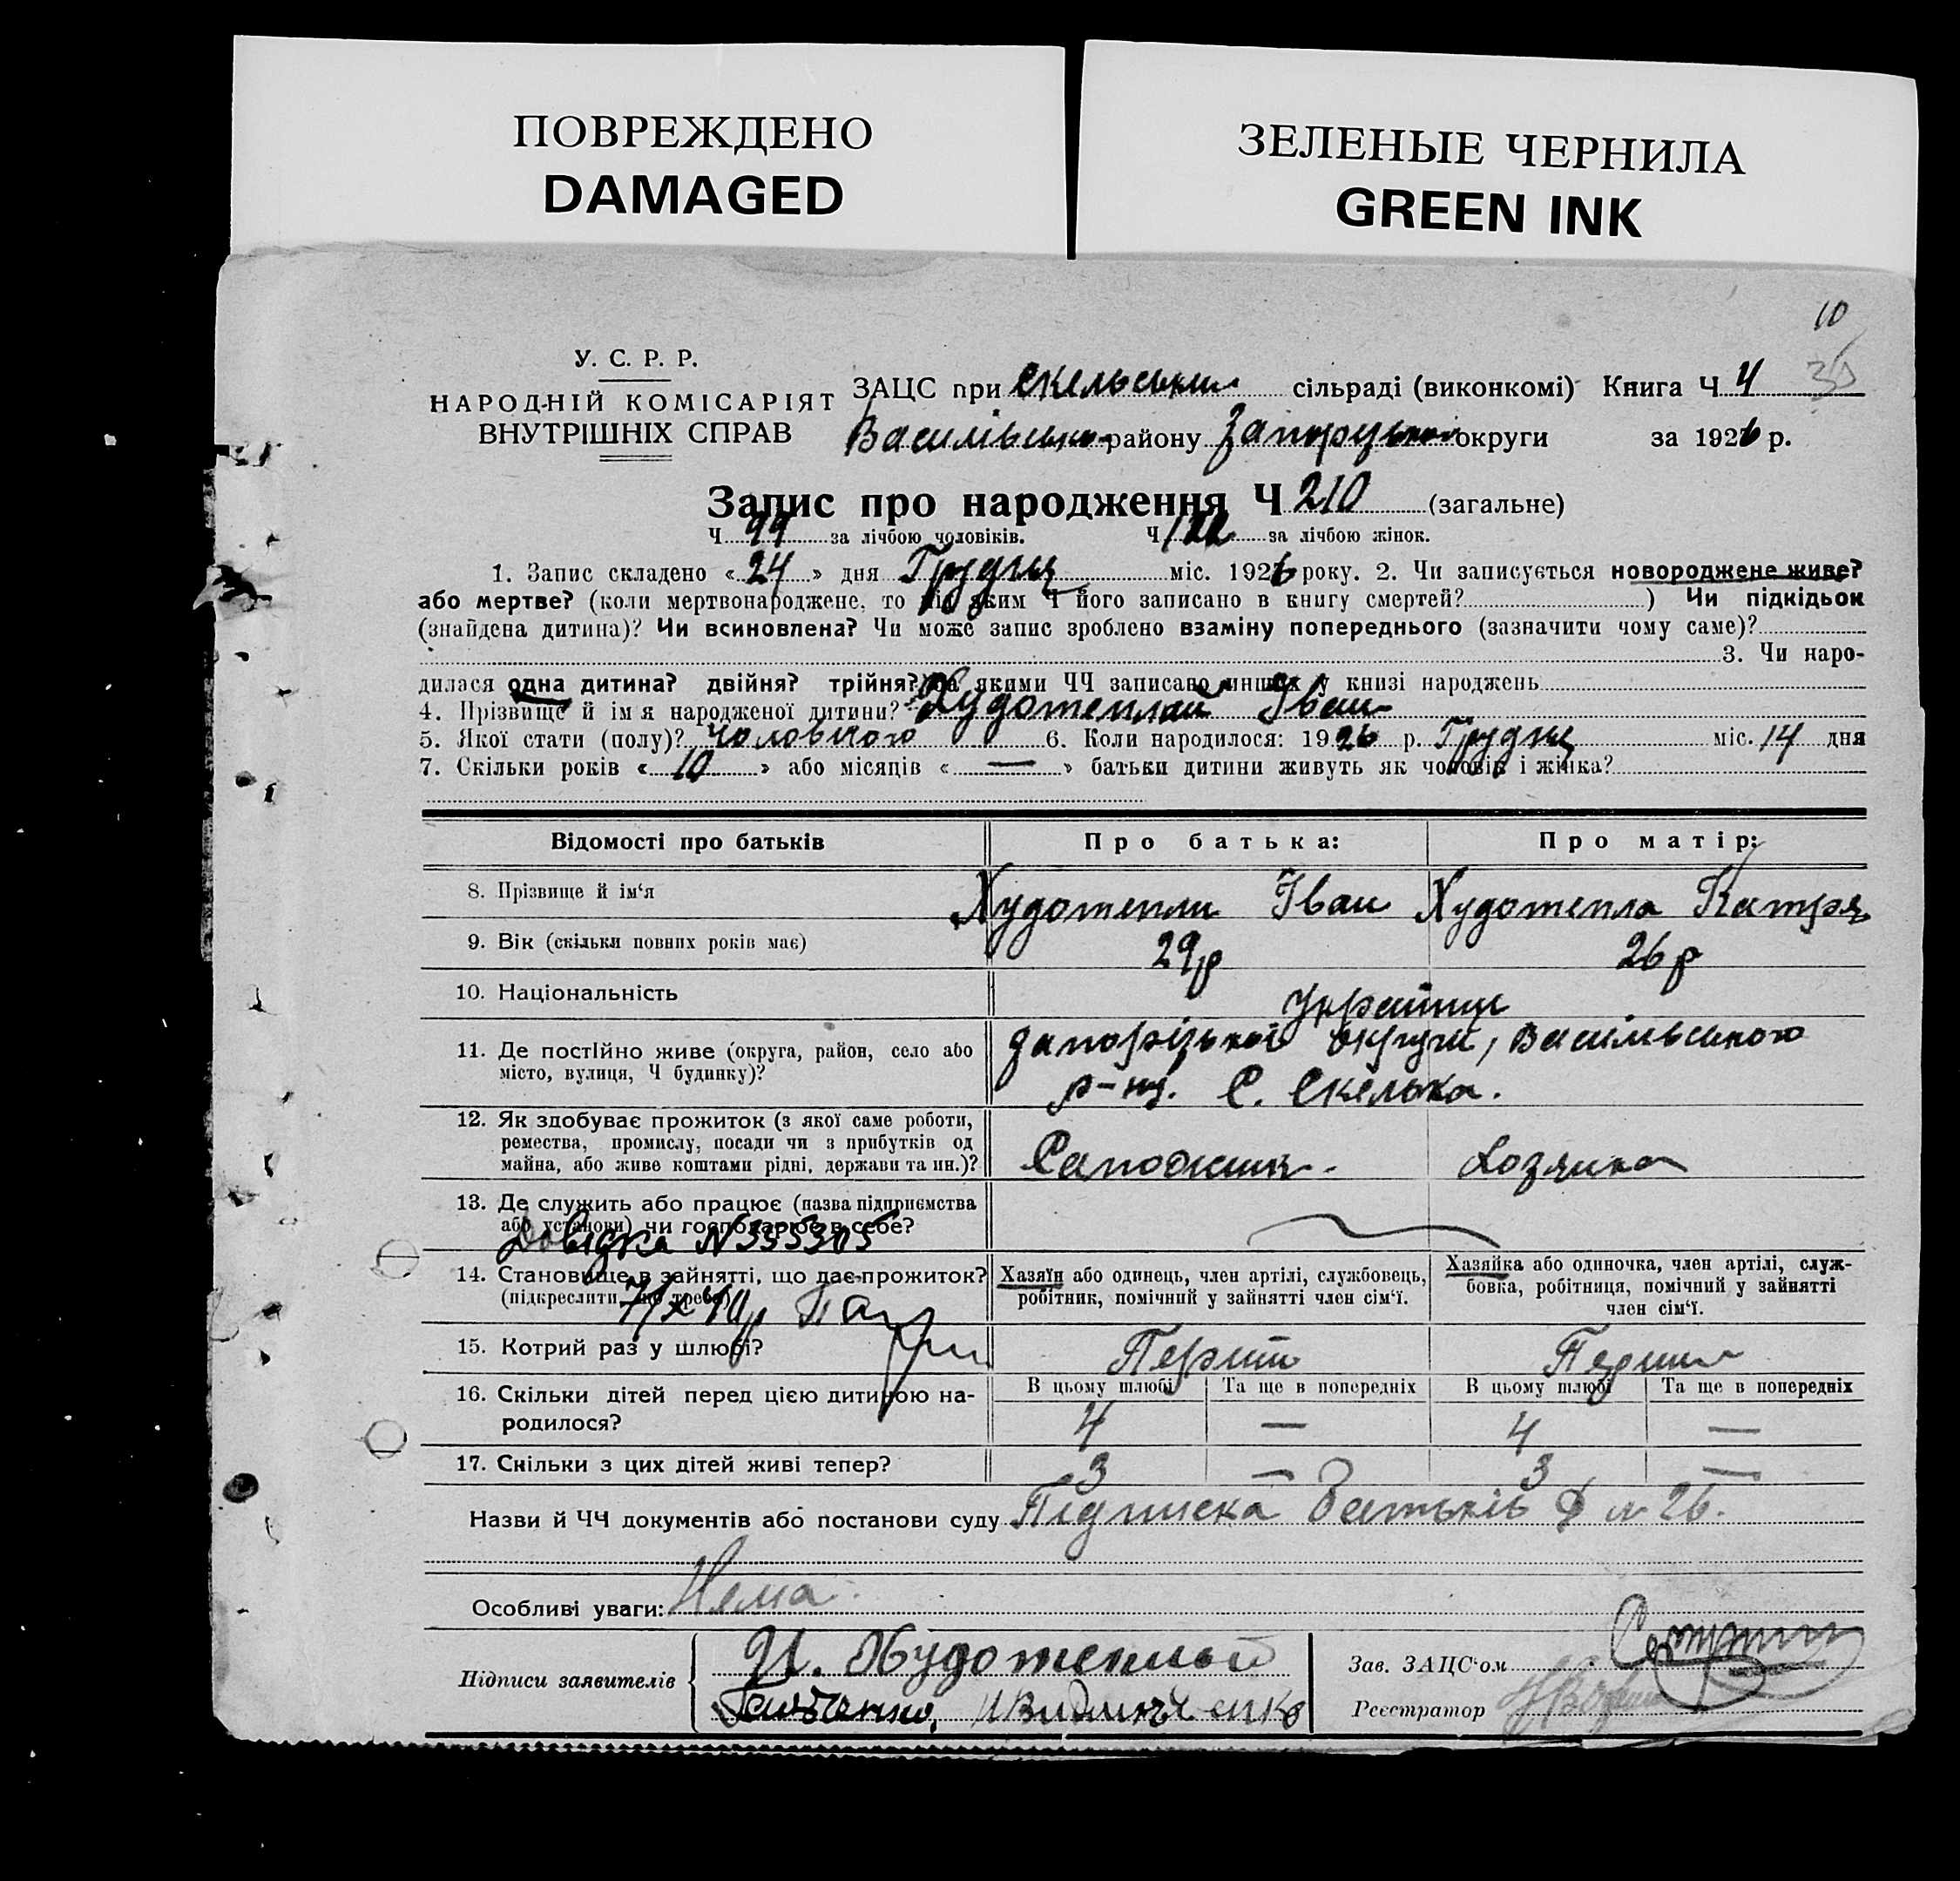 ПОВРЕЖДЕНО
DAMAGED
ЗЕЛЕНЫЕ ЧЕРНИЛА
GREEN INK
10
У. С. Р. Р.
НАРОДНІЙ КОМІСАРІЯТ
ВНУТРІШНІХ СПРАВ
ЗАЦС при Скельськім сільраді (виконкомі) Книга Ч 4
Василівсько району Запорізької округи за 1926 р.
Запис про народження Ч 210 (загальне)
Ч 99 за лічбою чоловіків. Ч за лічбою жінок.
1. Запис складено « 24 » дня Грудня міс. 1926 року. 2. Чи записується новороджене живе?
або мертве? (коли мертвонароджене, то під яким Ч його записано в книгу смертей? ) Чи підкідьок
(знайдена дитина)? Чи всиновлена? Чи може запис зроблено взаміну попереднього (зазначити чому саме)?
3. Чи наро-
дилася одна дитина? двійня? трійня? За якими ЧЧ записано инших у книзі народжень
4. Прізвище й імя народженої дитини? Худотеплий Іван
5. Якої стати (полу)? Чоловічого 6. Коли народилося: 1926 р. Грудня міс. 14 дня
7. Скільки років « 10 » або місяців « — » батьки дитини живуть як чоловік і жінка?
Відомості про батьків Про батька: Про матір:
8. Прізвище й ім‘я Худотепли Іван Худотепла Катря
9. Вік (скільки повних років має) 29 р 26 р
10. Національність Українці
11. Де постійно живе (округа, район, село або місто, вулиця, Ч будинку)?
Запорізької округи, Василівського
р-ну. С. Скелька.
12. Як здобуває прожиток (з якої саме роботи,
ремества, промислу, посади чи з прибутків од
майна, або живе коштами рідні, держави та ин.)? Сапожник. Хозяйка
13. Де служить або працює (назва підприємства
або установи) чи господарює в себе?
Довідка N 355305
14. Становище в зайнятті, що дає прожиток?
(підкреслити, що треба)
Хазяїн або одинець, член артілі, службовець,
робітник, помічний у зайнятті член сім‘ї.
Хазяйка або одиночка, член артілі, служ-
бовка, робітниця, помічний у зайнятті
член сім‘ї.
15. Котрий раз у шлюбі? Перший Перший
16. Скільки дітей перед цією дитиною на-
родилося?
В цьому шлюбі Та ще в попередніх В цьому шлюбі Та ще в попередніх
4 — 4 —
17. Скільки з цих дітей живі тепер? 3 — 3 —
Назви й ЧЧ документів або постанови суду Підписка батьків 26.
Особливі уваги: Нема
Підписи заявителів
И. Худотеплый
Зав. ЗАЦС‘ом
Реєстратор